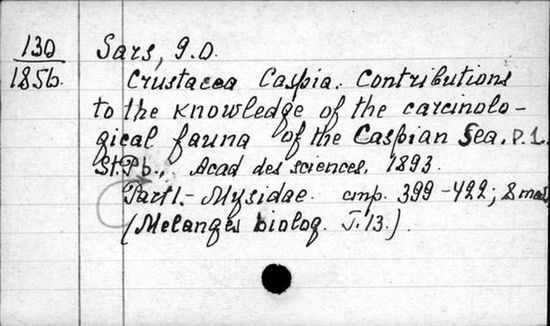 130 Sars, G.O.
1856. Crustacea Caspia. Contributions
to the knowledge of the carcinolo-
gical fauna of the Caspian Sea. P. 1.
St. Pb., Acad des sciences, 1893.
Part 1.- Mysidae. стр. 399-422; 8 таб
(Melanges biolog. T. 13.).